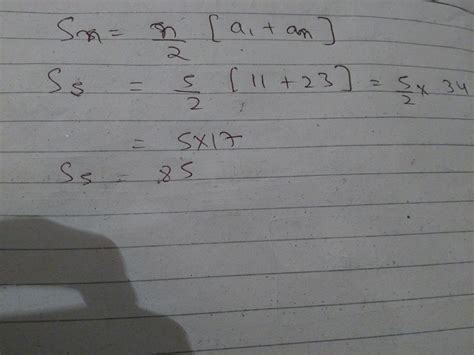 Sn = n/2 [a1 + an]
S5 = 5/2 [11 + 23] = 5/2 × 34
= 5×17
S5 = 85